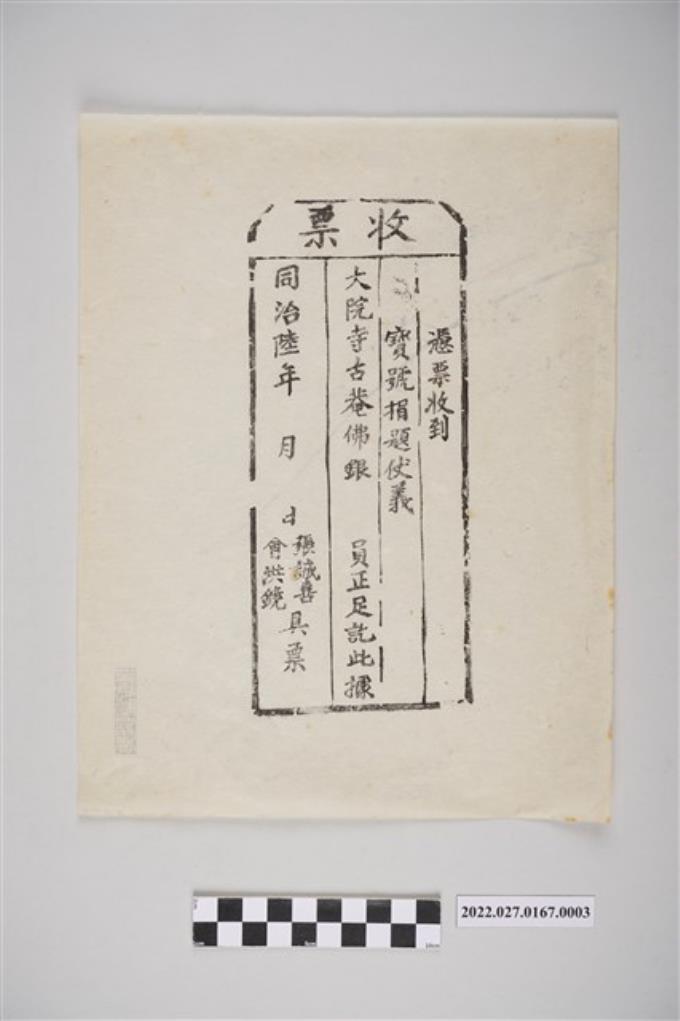 收票
憑票收到
寶號捐題使義
大院寺古菴佛銀　員正足訖此據
同治陸年　月　日
張誠喜
會洪鐃
具票
2022.027.0167.0003